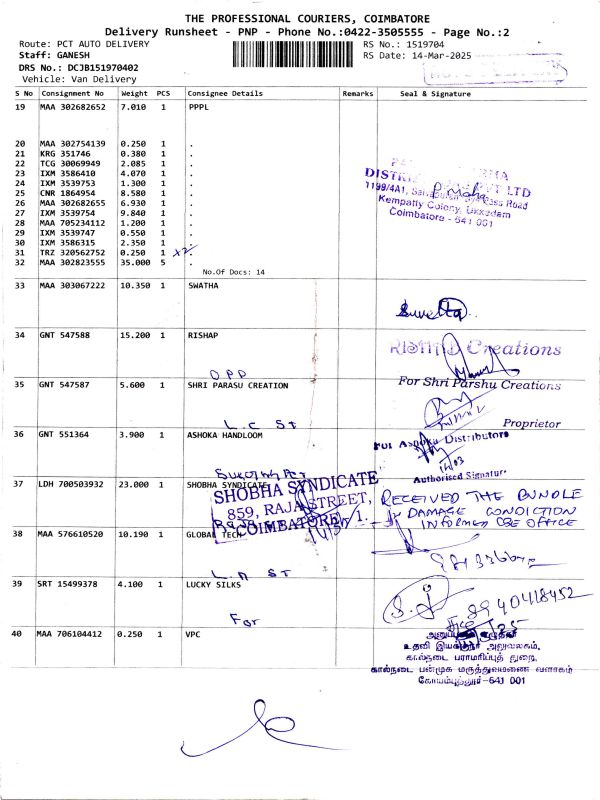 THE PROFESSIONAL COURIERS, COIMBATORE
Delivery Runsheet - PNP - Phone No.:0422-3505555 - Page No.:2
Route: PCT AUTO DELIVERY
RS No.: 1519704
Staff: GANESH
RS Date: 14-Mar-2025
DRS No.: DCJB151970402
Vehicle: Van Delivery
S No Consignment No Weight PCS Consignee Details Remarks Seal & Signature
19 MAA 302682652 7.010 1 PPPL
20 MAA 302754139 0.250 1 .
21 KRG 351746 0.380 1 .
22 TCG 30069949 2.085 1 .
23 IXM 3586410 4.070 1 .
24 IXM 3539753 1.300 1 .
25 CNR 1864954 8.580 1 .
26 MAA 302682655 6.930 1 .
27 IXM 3539754 9.840 1 .
28 MAA 705234112 1.200 1 .
29 IXM 3539747 0.550 1 .
30 IXM 3586315 2.350 1 .
31 TRZ 320562752 0.250 1 .
32 MAA 302823555 35.000 5 .
No.Of Docs: 14
PVT LTD
1199/4A1, Road
Kempatty Colony, Ukkadam
Coimbatore - 641 001
33 MAA 303067222 10.350 1 SWATHA
34 GNT 547588 15.200 1 RISHAP
Creations
OPP
35 GNT 547587 5.600 1 SHRI PARASU CREATION
For Shri Parshu Creations
Proprietor
L.C St
36 GNT 551364 3.900 1 ASHOKA HANDLOOM
For Ashoka Distributors
14/03
Authorised Signatur
37 LDH 700503932 23.000 1 SHOBHA SYNDICATE
SHOBHA SYNDICATE
859, RAJA STREET,
COIMBATORE - 1.
RECEIVED THE BUNDLE
IN DAMAGE CONDICTION
INFORMED OFFICE
38 MAA 576610520 10.190 1 GLOBAL TECH
L.N St
39 SRT 15499378 4.100 1 LUCKY SILKS
8940418452
For
40 MAA 706104412 0.250 1 VPC
உதவி இயக்குநர் அலுவலகம்,
கால்நடை பராமரிப்புத் துறை,
கால்நடை பன்முக மருத்துவமனை வளாகம்
கோயம்புத்தூர்-641 001